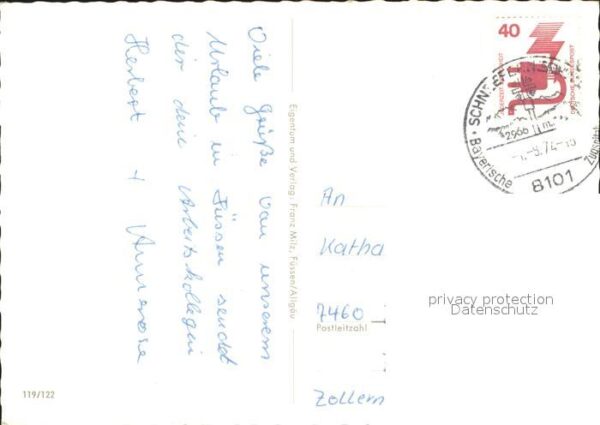 Viele Grüße von unserem
Urlaub in Füssen sendet
dir deine Arbeitskollegin
Herbert + Annerose
Eigentum und Verlag: Franz Milz, Füssen/Allgäu
119/122
40
DEUTSCHE BUNDESPOST
SCHNEEFERN
2966 m
Bayerische Zugspitz
8101
An
Katha
7460
Postleitzahl
Zollern
privacy protection
Datenschutz